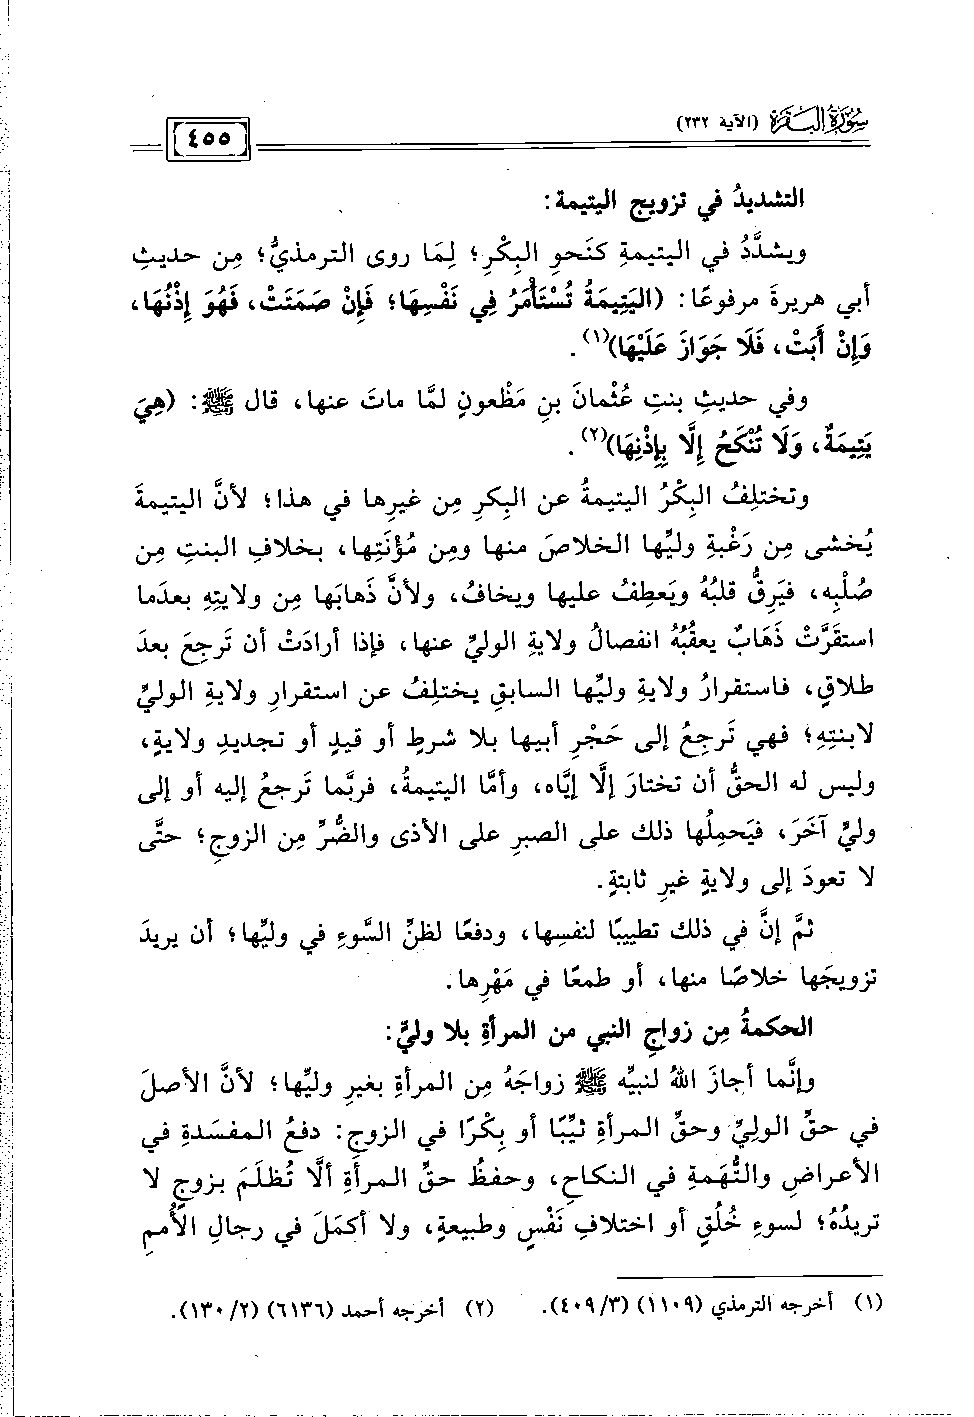 سُورَةُ البَقَرَةِ (الآية ٢٣٢)
٤٥٥
التشديدُ في تزويج اليتيمة:
ويشدَّدُ في اليتيمةِ كنَحوِ البِكْرِ؛ لِمَا روى الترمذيُّ؛ مِن حديثِ
أبي هريرةَ مرفوعًا: (اليَتِيمَةُ تُسْتَأْمَرُ فِي نَفْسِهَا؛ فَإِنْ صَمَتَتْ، فَهُوَ إِذْنُهَا،
وَإِنْ أَبَتْ، فَلَا جَوَازَ عَلَيْهَا)(١).
وفي حديثِ بنتِ عُثْمانَ بنِ مَظْعونٍ لمَّا ماتَ عنها، قال ﷺ: (هِيَ
يَتِيمَةٌ، وَلَا تُنْكَحُ إِلَّا بِإِذْنِهَا)(٢).
وتختلِفُ البِكْرُ اليتيمةُ عن البكرِ مِن غيرِها في هذا؛ لأنَّ اليتيمةَ
يُخشى مِن رَغْبةِ وليِّها الخلاصَ منها ومِن مُؤْنَتِها، بخلافِ البنتِ مِن
صُلْبِه، فيَرِقُّ قلبُهُ ويَعطِفُ عليها ويخافُ، ولأنَّ ذَهابَها مِن ولايتِهِ بعدَما
استقَرَّتْ ذَهَابٌ يعقُبُهُ انفصالُ ولايةِ الوليِّ عنها، فإذا أرادَتْ أن تَرجِعَ بعدَ
طلاقٍ، فاستقرارُ ولايةِ وليِّها السابقِ يختلِفُ عن استقرارِ ولايةِ الوليِّ
لابنتِهِ؛ فهي تَرجِعُ إلى حَجْرِ أبيها بلا شرطٍ أو قيدٍ أو تجديدِ ولايةٍ،
وليس له الحقُّ أن تختارَ إلَّا إيَّاه، وأمَّا اليتيمةُ، فربَّما تَرجعُ إليه أو إلى
وليٍّ آخَرَ، فيَحمِلُها ذلك على الصبرِ على الأذى والضُّرِّ مِن الزوجِ؛ حتَّى
لا تعودَ إلى ولايةٍ غيرِ ثابتةٍ.
ثمَّ إنَّ في ذلك تطييبًا لنفسِها، ودفعًا لظنِّ السُّوءِ في وليِّها؛ أن يريدَ
تزويجَها خلاصًا منها، أو طمعًا في مَهْرِها.
الحكمةُ مِن زواجِ النبي من المرأةِ بلا وليٍّ:
وإنَّما أجازَ اللهُ لنبيِّه ﷺ زواجَهُ مِن المرأةِ بغيرِ وليِّها؛ لأنَّ الأصلَ
في حقِّ الوليِّ وحقِّ المرأةِ ثيِّبًا أو بِكْرًا في الزوجِ: دفعُ المفسَدةِ في
الأعراضِ والتُّهَمةِ في النكاحِ، وحفظُ حقِّ المرأةِ ألَّا تُظلَمَ بزوجٍ لا
تريدُهُ؛ لسوءِ خُلُقٍ أو اختلافِ نَفْسٍ وطبيعةٍ، ولا أكمَلَ في رجالِ الأُممِ
(١) أخرجه الترمذي (١١٠٩) (٣/ ٤٠٩). (٢) أخرجه أحمد (٦١٣٦) (٢/ ١٣٠).